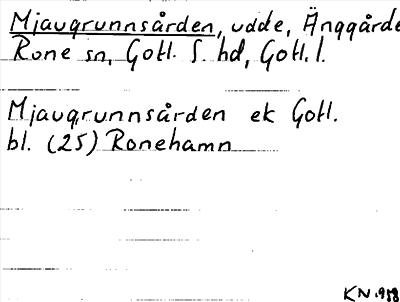 Mjaugrunnsården, udde, Änggårde
Rone sn, Gotl. S. hd, Gotl. l.
Mjaugrunnsården ek Gotl.
bl. (25) Ronehamn
KN.